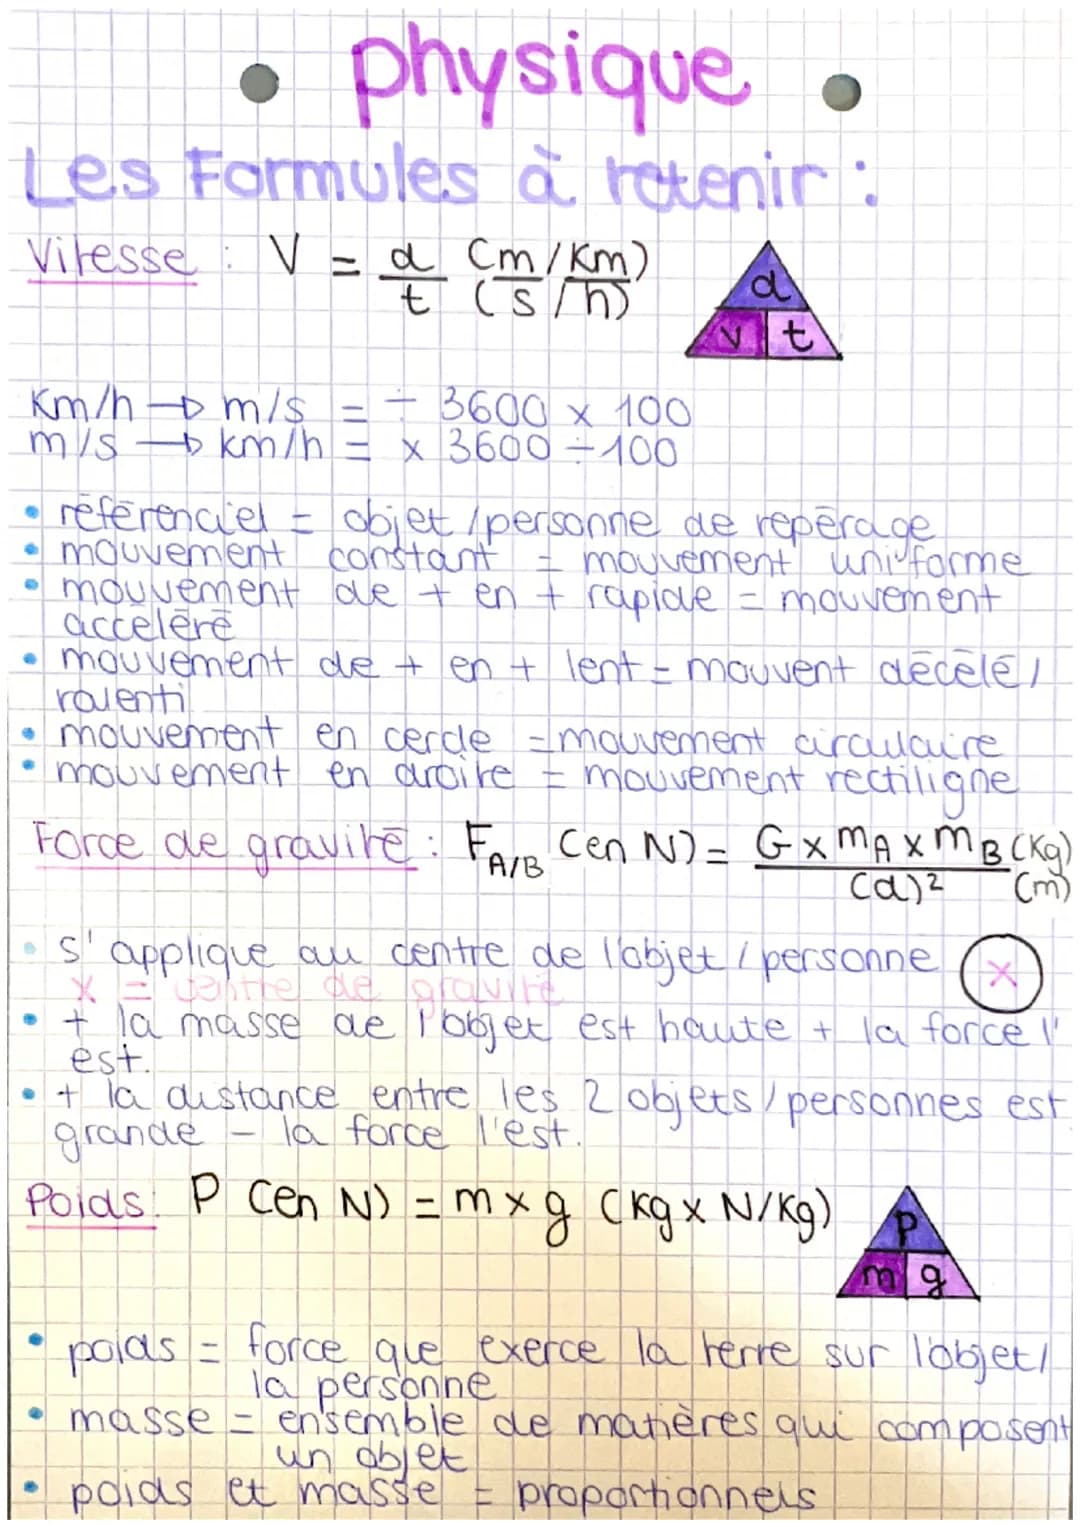 physique
Les Formules à retenir :
Vitesse : V = d/t (m/km) / (s/h)
d
v t
Km/h → m/s = ÷ 3600 x 100
m/s → km/h = x 3600 ÷ 100
• référenciel = objet/personne de repérage
• mouvement constant = mouvement uniforme
• mouvement de + en + rapide = mouvement
accéléré
• mouvement de + en + lent = mouvent décélé/
ralenti
• mouvement en cercle = mouvement circulaire
• mouvement en droite = mouvement rectiligne
Force de gravité : F A/B (en N) = G x mA x mB (Kg)
(d)² (m)
• s'applique au centre de l'objet / personne x
x = centre de gravité
• + la masse de l'objet est haute + la force l'
est.
• + la distance entre les 2 objets/personnes est
grande - la force l'est.
Poids : P (en N) = m x g (Kg x N/Kg)
P
m g
• poids = force que exerce la terre sur l'objet/
la personne
• masse = ensemble de matières qui composent
un objet
• poids et masse = proportionnels